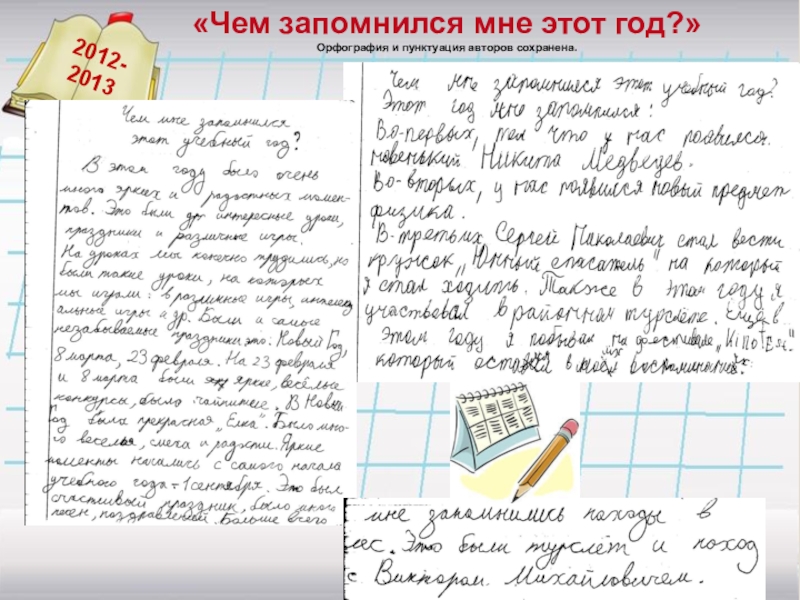 «Чем запомнился мне этот год?»
Орфография и пунктуация авторов сохранена.
2012-
2013
Чем мне запомнился
этот учебный год?
В этом году было очень
много ярких и радостных момен-
тов. Это были интересные уроки,
праздники и различные игры.
На уроках мы конечно трудились, но
были такие уроки, на которых
мы играли: в различные игры, интелект
альные игры и др. Были и самые
незабываемые праздники это: Новый Год,
8 марта, 23 февраля. На 23 февраля
и 8 марта были яркие, весёлые
конкурсы, было чаепитие. В Новый
год была прекрасная „Ёлка". Было мно-
го веселья, смеха и радости. Яркие
моменты начались с самого начала
учебного года - 1 сентября. Это был
счастливый праздник, было много
песен, поздравлений. Больше всего
Чем мне запомнился этот учебный год?
Этот год мне запомнился:
Во-первых, тем что у нас появился
новенький Никита Медведев.
Во-вторых, у нас появился новый предмет
физика.
В-третьих Сергей Николаевич стал вести
кружок „Юнный спасатель" на который
я стал ходить. Также в этом году я
участвовал в районном турслёте. Ещё в
этом году я побывал на фестивале „KinoFest"
который в моих воспоминаниях.
мне запомнились походы в
лес. Это были турслёт и поход
с Виктором Михайловичем.